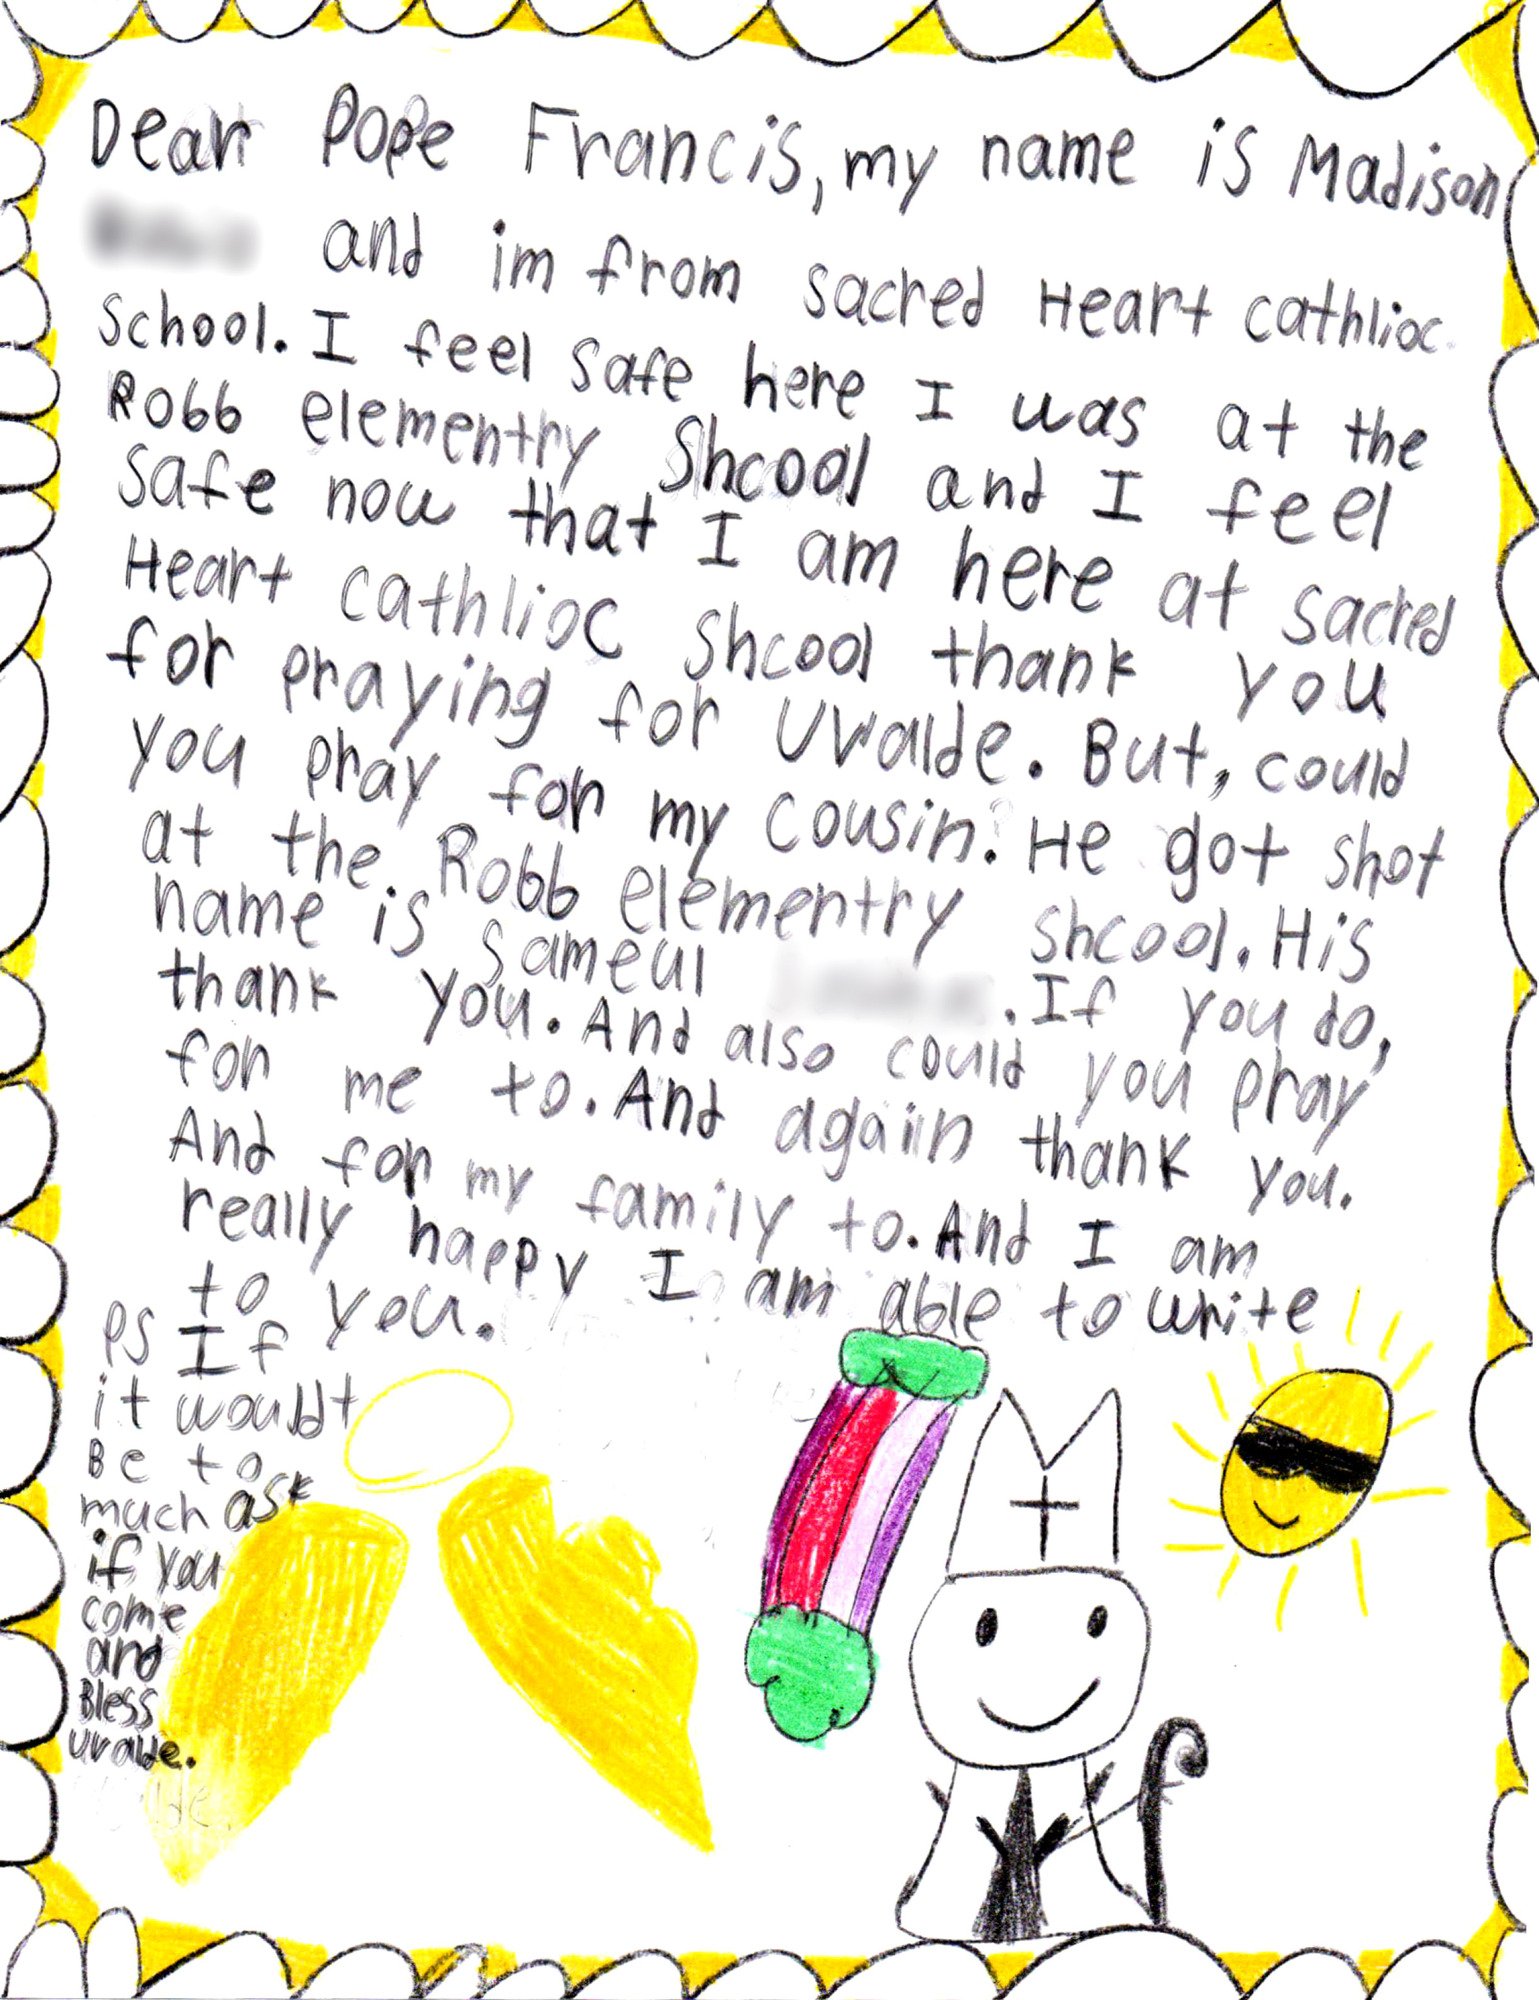 Dear Pope Francis, my name is Madison
and im from sacred Heart cathlioc
School. I feel safe here I was at the
Robb elementry Shcool and I feel
safe now that I am here at sacred
Heart cathlioc shcool thank you
for praying for Uvalde. But, could
you pray for my cousin? He got shot
at the Robb elementry shcool. His
name is sameul . If you do,
thank you. And also could you pray
for me to. And again thank you.
And for my family to. And I am
really happy I am able to write
to you.
PS If
it wouldt
Be to
much ask
if you
come
and
Bless
uvalde.